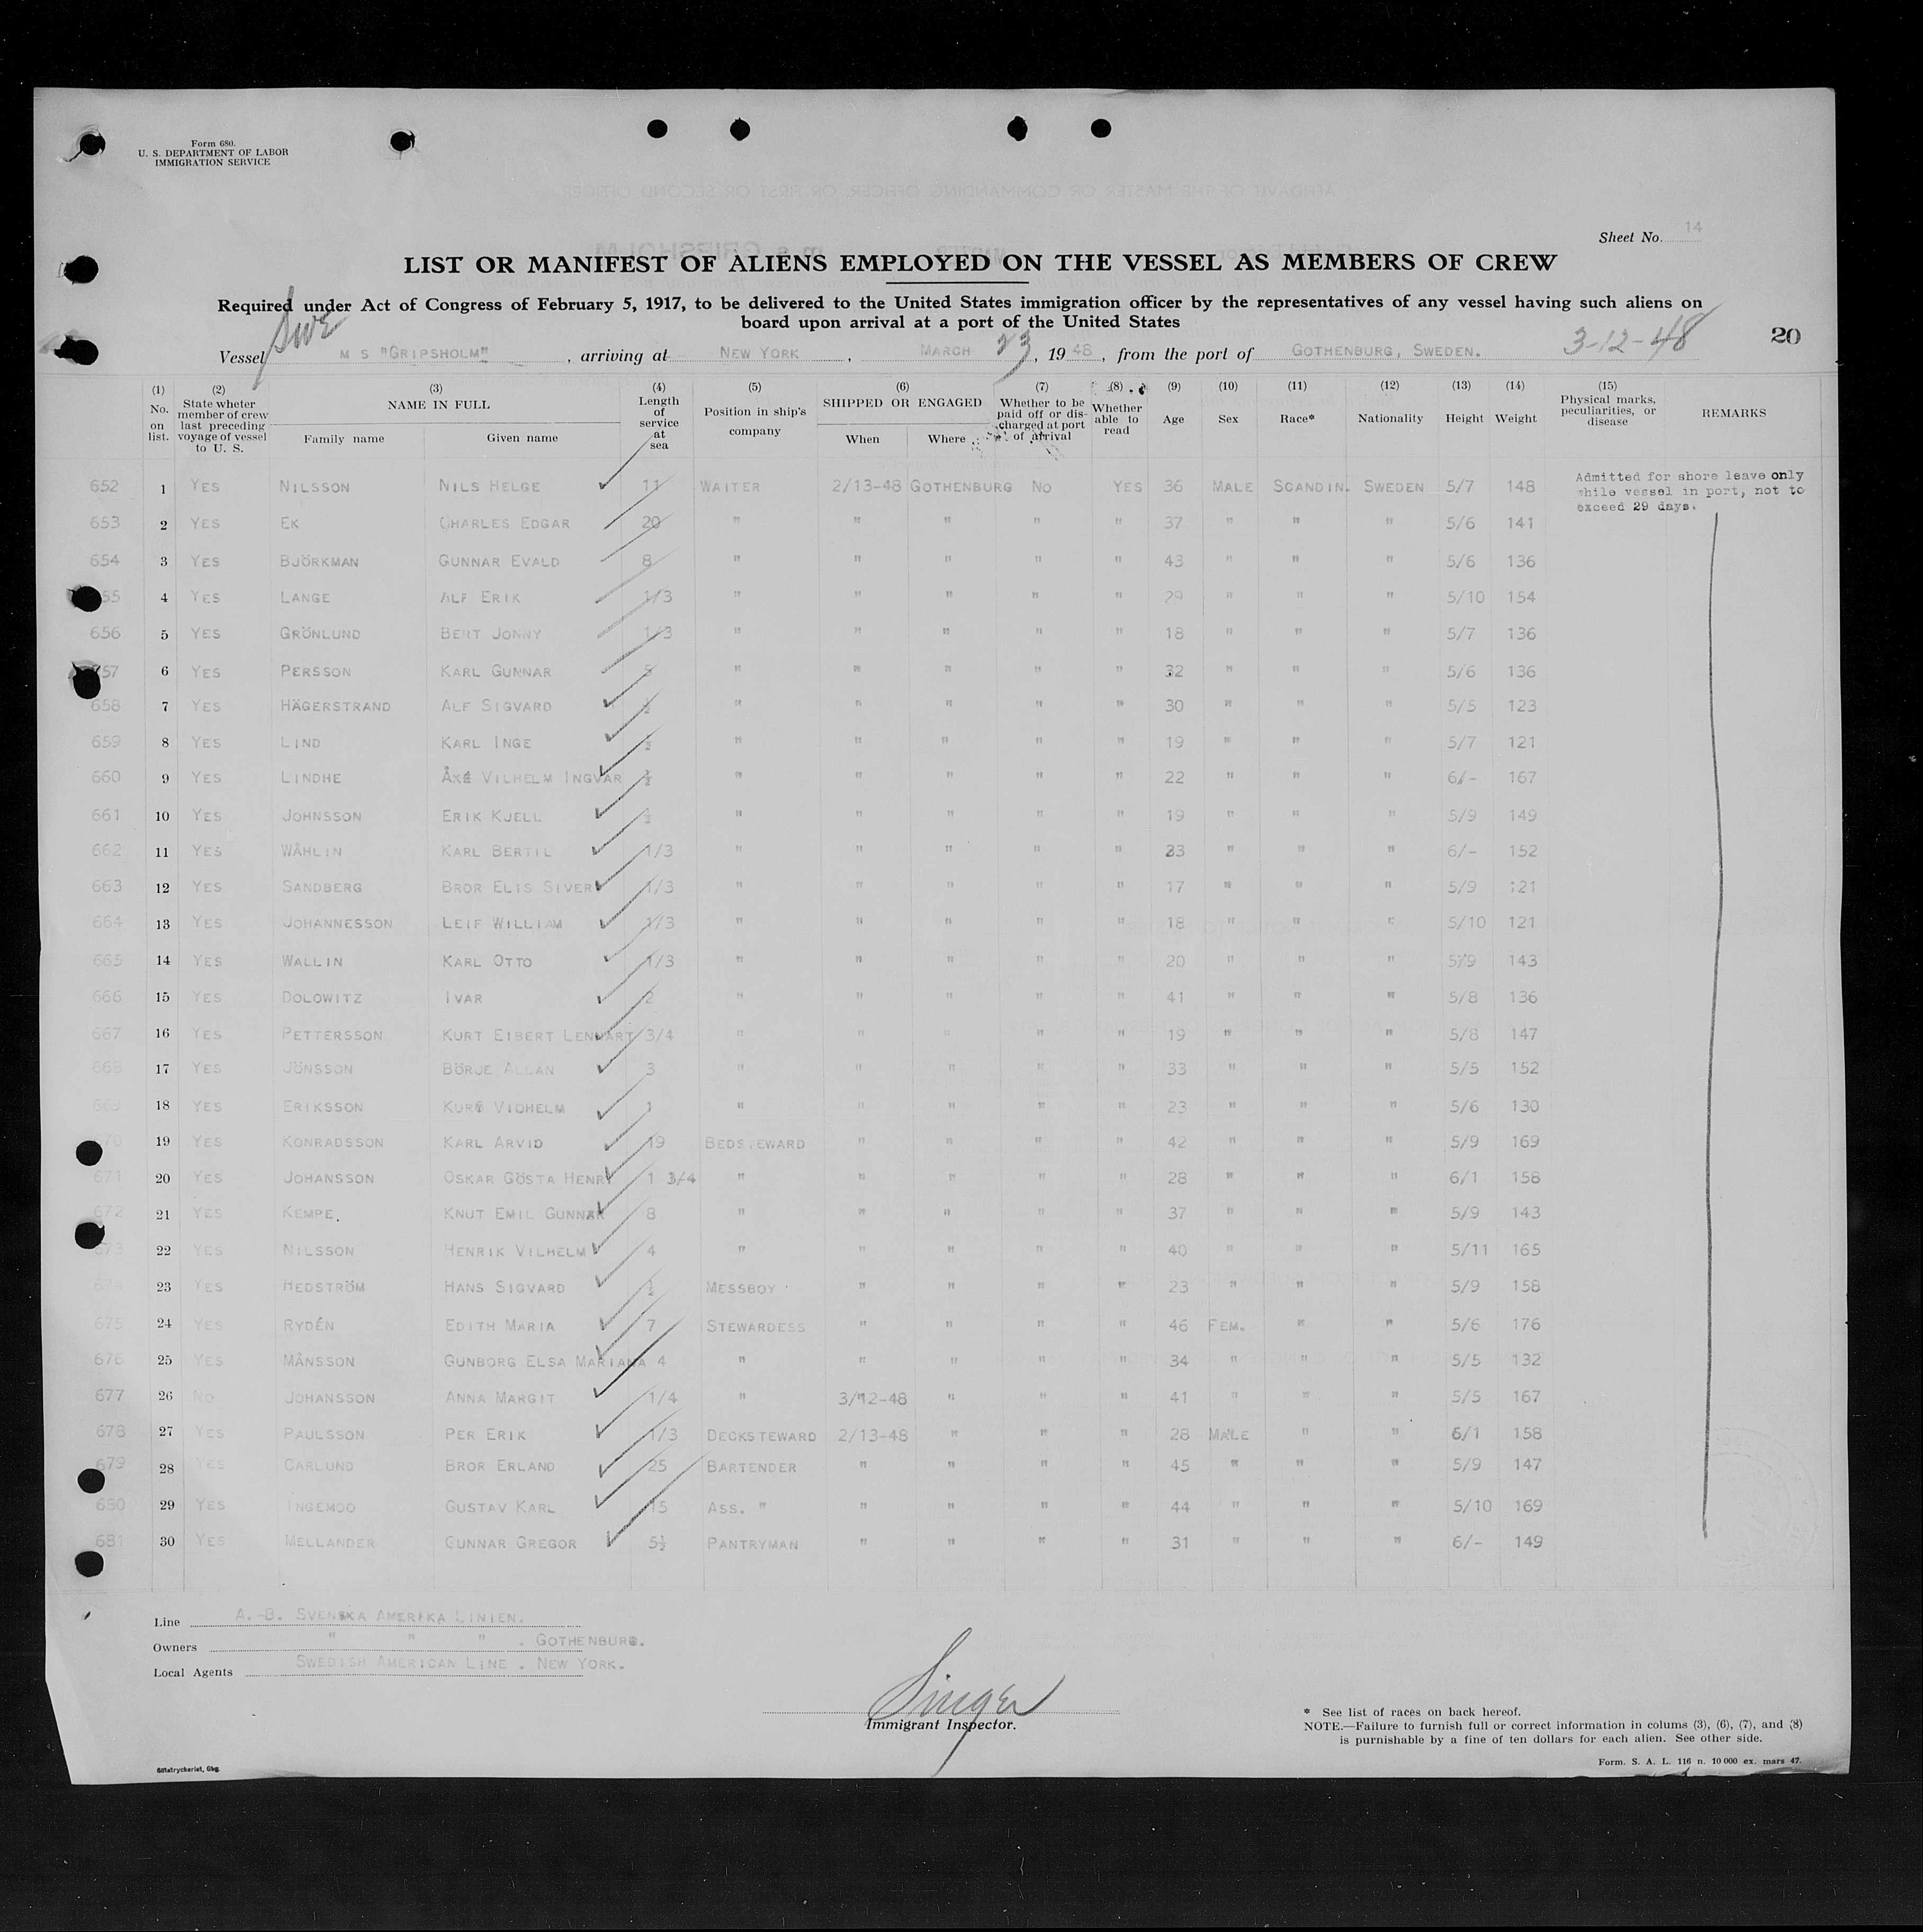 Form 680.
U. S. DEPARTMENT OF LABOR
IMMIGRATION SERVICE
Sheet No. 14
LIST OR MANIFEST OF ALIENS EMPLOYED ON THE VESSEL AS MEMBERS OF CREW
Required under Act of Congress of February 5, 1917, to be delivered to the United States immigration officer by the representatives of any vessel having such aliens on
board upon arrival at a port of the United States
Swe
Vessel M S "GRIPSHOLM", arriving at NEW YORK, MARCH 23, 1948, from the port of GOTHENBURG, SWEDEN. 3-12-48 20
(1) No. on list. (2) State wheter member of crew last preceding voyage of vessel to U. S. (3) NAME IN FULL Family name Given name (4) Length of service at sea (5) Position in ship's company (6) SHIPPED OR ENGAGED When Where (7) Whether to be paid off or discharged at port of arrival (8) Whether able to read (9) Age (10) Sex (11) Race* (12) Nationality (13) Height (14) Weight (15) Physical marks, peculiarities, or disease REMARKS
652 1 YES NILSSON NILS HELGE 11 WAITER 2/13-48 GOTHENBURG NO YES 36 MALE SCANDIN. SWEDEN 5/7 148 Admitted for shore leave only
while vessel in port, not to
exceed 29 days.
653 2 YES EK CHARLES EDGAR 20 " " " " " 37 " " " 5/6 141
654 3 YES BJÖRKMAN GUNNAR EVALD 8 " " " " " 43 " " " 5/6 136
55 4 YES LANGE ALF ERIK 1/3 " " " " " 29 " " " 5/10 154
656 5 YES GRÖNLUND BERT JONNY 1/3 " " " " " 18 " " " 5/7 136
57 6 YES PERSSON KARL GUNNAR 5 " " " " " 32 " " " 5/6 136
658 7 YES HÄGERSTRAND ALF SIGVARD ½ " " " " " 30 " " " 5/5 123
659 8 YES LIND KARL INGE ½ " " " " " 19 " " " 5/7 121
660 9 YES LINDHE VILHELM INGVAR ½ " " " " " 22 " " " 6/- 167
661 10 YES JOHNSSON ERIK KJELL ½ " " " " " 19 " " " 5/9 149
662 11 YES WÅHLIN KARL BERTIL 1/3 " " " " " 23 " " " 6/- 152
663 12 YES SANDBERG BROR ELIS SIVER 1/3 " " " " " 17 " " " 5/9 121
664 13 YES JOHANNESSON LEIF WILLIAM 1/3 " " " " " 18 " " " 5/10 121
665 14 YES WALLIN KARL OTTO 1/3 " " " " " 20 " " " 5/9 143
666 15 YES DOLOWITZ IVAR 2 " " " " " 41 " " " 5/8 136
667 16 YES PETTERSSON KURT EIBERT LENNART 3/4 " " " " " 19 " " " 5/8 147
668 17 YES JÖNSSON BÖRJE ALLAN 3 " " " " " 33 " " " 5/5 152
669 18 YES ERIKSSON KURT VIDHELM 1 " " " " " 23 " " " 5/6 130
670 19 YES KONRADSSON KARL ARVID 19 BEDSTEWARD " " " " 42 " " " 5/9 169
671 20 YES JOHANSSON OSKAR GÖSTA HENRY 1 3/4 " " " " " 28 " " " 6/1 158
672 21 YES KEMPE. KNUT EMIL GUNNAR 8 " " " " " 37 " " " 5/9 143
673 22 YES NILSSON HENRIK VILHELM 4 " " " " " 40 " " " 5/11 165
674 23 YES HEDSTRÖM HANS SIGVARD ½ MESSBOY " " " " 23 " " " 5/9 158
675 24 YES RYDÉN EDITH MARIA 7 STEWARDESS " " " " 46 FEM. " " 5/6 176
676 25 YES MÅNSSON GUNBORG ELSA MARIANA 4 " " " " " 34 " " " 5/5 132
677 26 NO JOHANSSON ANNA MARGIT 1/4 " 3/12-48 " " " 41 " " " 5/5 167
678 27 YES PAULSSON PER ERIK 1/3 DECKSTEWARD 2/13-48 " " " 28 MALE " " 6/1 158
679 28 YES CARLUND BROR ERLAND 25 BARTENDER " " " " 45 " " " 5/9 147
680 29 YES INGEMOO GUSTAV KARL 15 ASS. " " " " " 44 " " " 5/10 169
681 30 YES MELLANDER GUNNAR GREGOR 5½ PANTRYMAN " " " " 31 " " " 6/- 149
Line A.-B. SVENSKA AMERIKA LINIEN.
Owners " " " . GOTHENBURG.
Local Agents SWEDISH AMERICAN LINE . NEW YORK.
Singer
Immigrant Inspector.
* See list of races on back hereof.
NOTE.—Failure to furnish full or correct information in colums (3), (6), (7), and (8)
is purnishable by a fine of ten dollars for each alien. See other side.
Form. S. A. L. 116 n. 10 000 ex. mars 47.